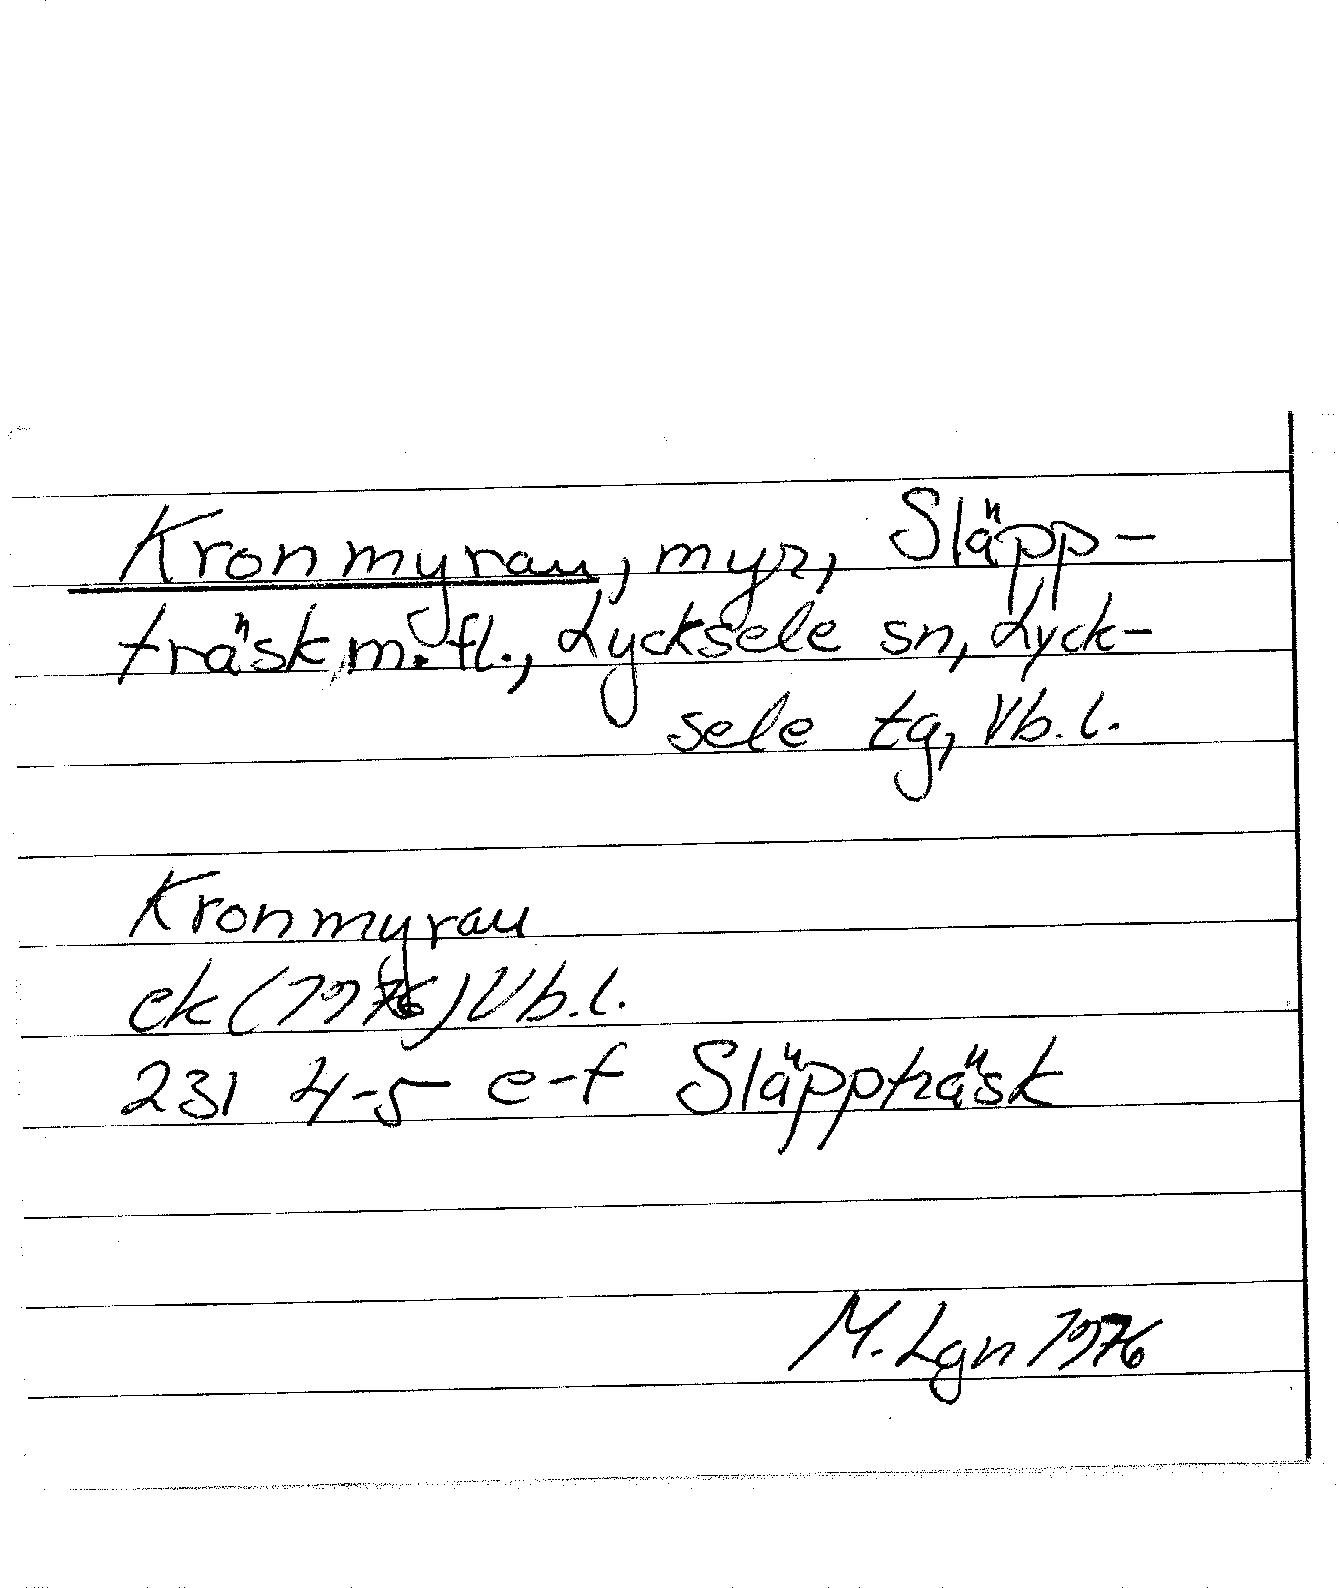 Kronmyran, myr, Släpp-
träsk m.fl., Lycksele sn, Lyck-
sele tg, Vb.l.
Kronmyran
ek (1976) Vb.l.
231 4-5 e-f Släppträsk
M. Lgn 1976